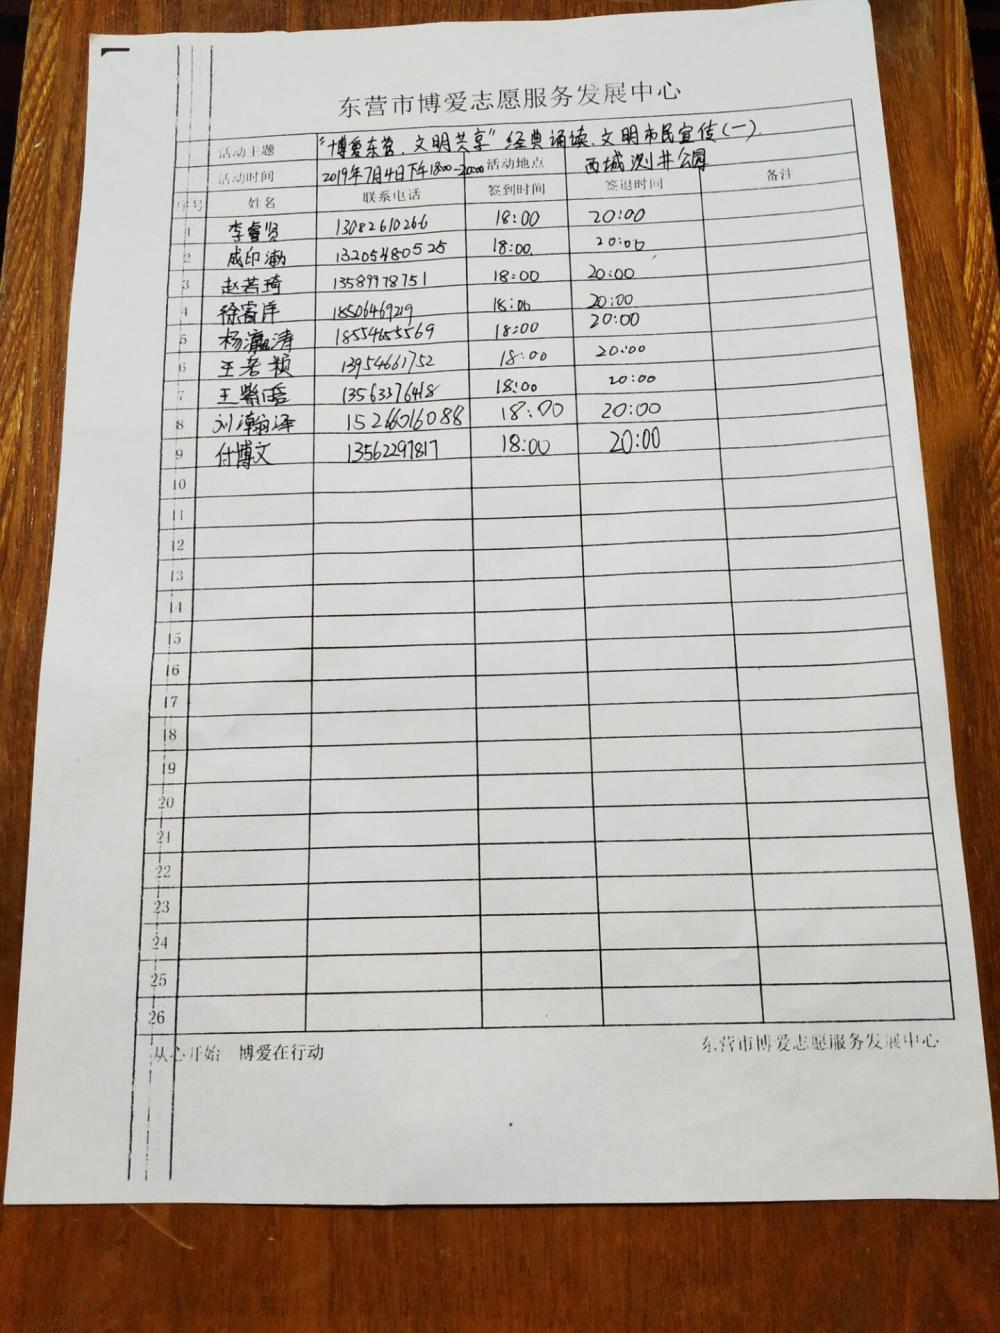 东营市博爱志愿服务发展中心
活动主题 “博爱东营、文明共享”经典诵读、文明市民宣传(一).
活动时间 2019年7月4日下午18:00-20:00 活动地点 西城测井公园
序号 姓名 联系电话 签到时间 签退时间 备注
1 李睿贤 13082610266 18:00 20:00
2 成印渤 13205480525 18:00 20:00
3 赵若琦 13589978751 18:00 20:00
4 徐睿洋 18506469219 18:00 20:00
5 杨瀛涛 18554655569 18:00 20:00
6 王若颖 13954661752 18:00 20:00
7 王紫 13563376418 18:00 20:00
8 刘瀚泽 15266016088 18:00 20:00
9 付博文 13562297817 18:00 20:00
10
11
12
13
14
15
16
17
18
19
20
21
22
23
24
25
26
从心开始 博爱在行动 东营市博爱志愿服务发展中心